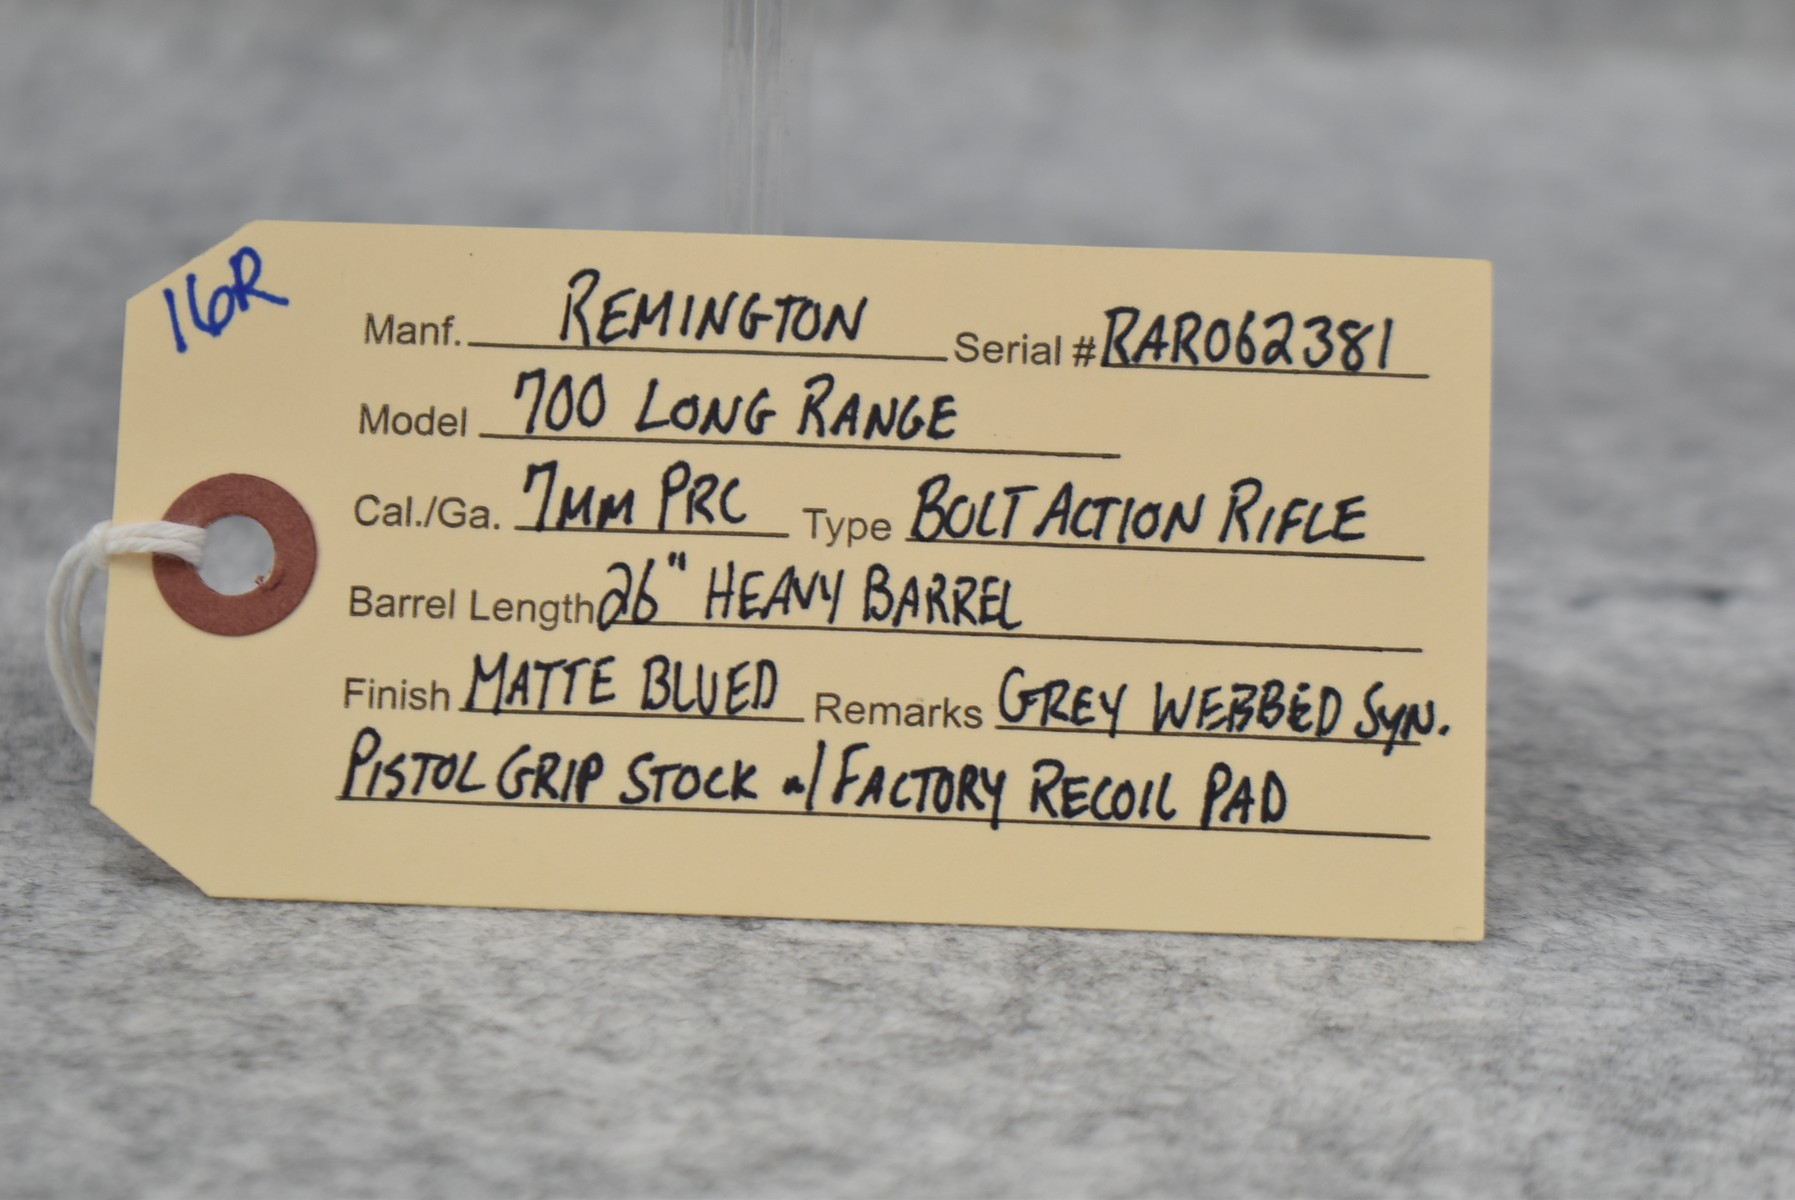 16R
Manf. REMINGTON Serial # RAR062381
Model 700 LONG RANGE
Cal./Ga. 7MM PRC Type BOLT ACTION RIFLE
Barrel Length 26" HEAVY BARREL
Finish MATTE BLUED Remarks GREY WEBBED SYN.
PISTOL GRIP STOCK w/ FACTORY RECOIL PAD